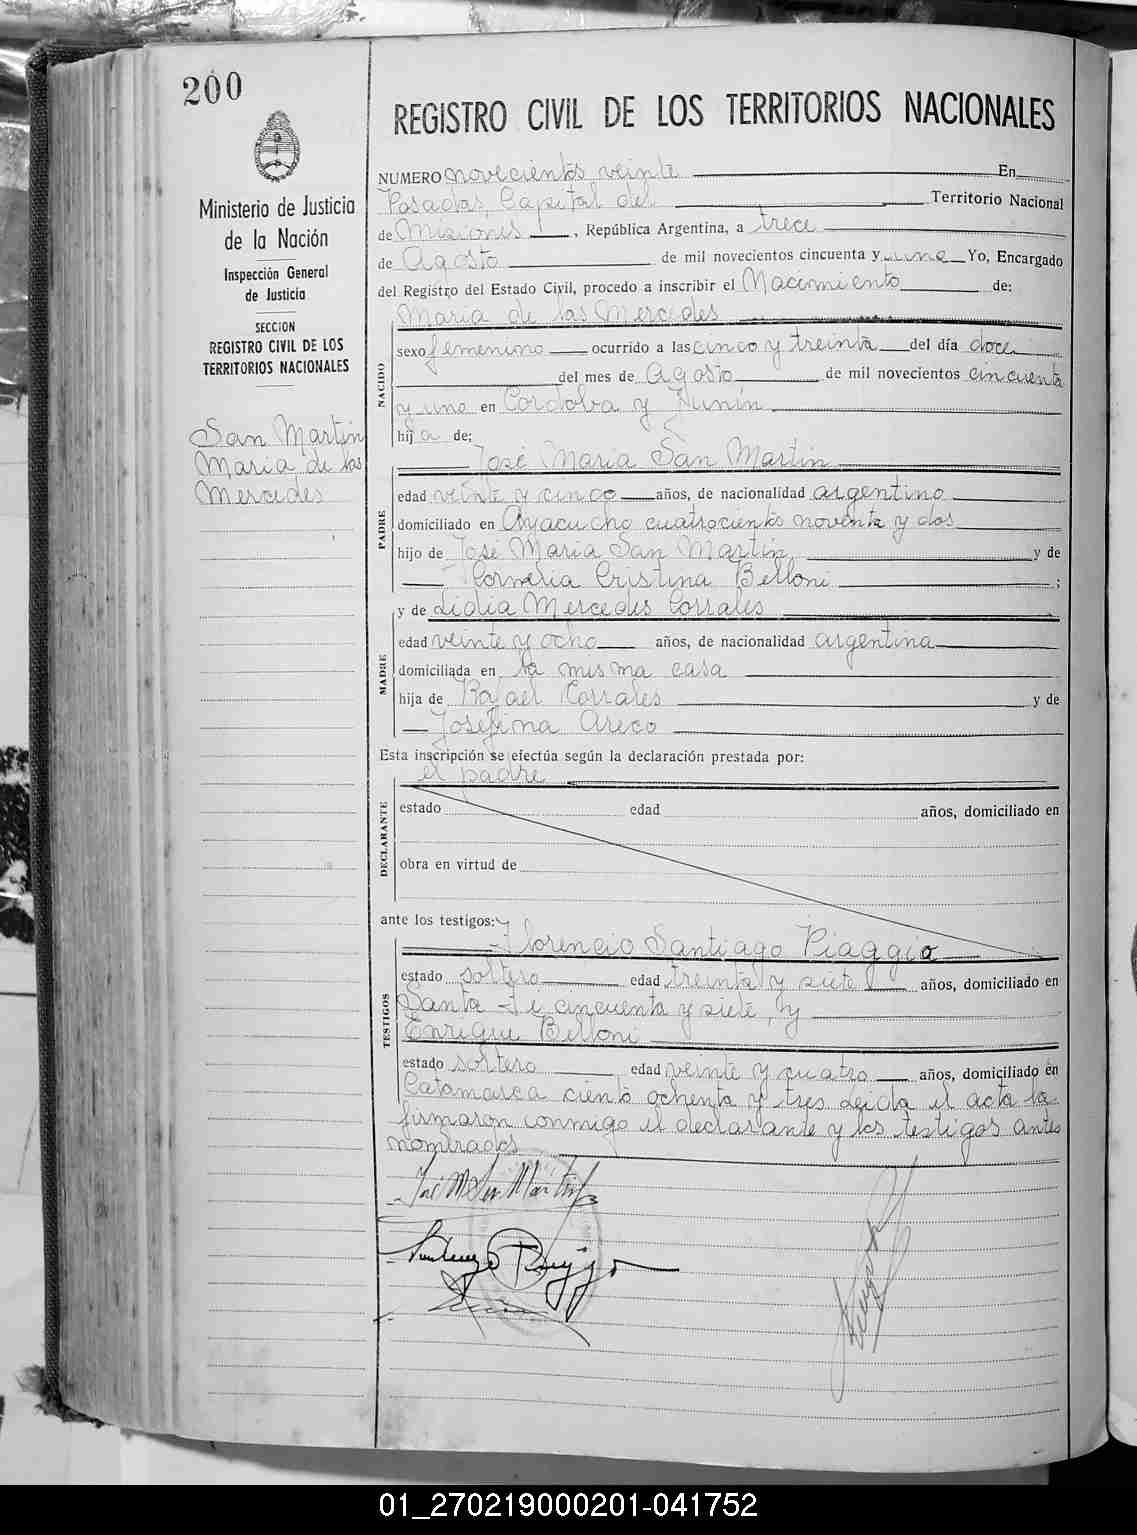 200
REGISTRO CIVIL DE LOS TERRITORIOS NACIONALES
Ministerio de Justicia
de la Nación
Inspección General
de Justicia
SECCION
REGISTRO CIVIL DE LOS
TERRITORIOS NACIONALES
San Martin
Maria de las
Mercedes
NUMERO novecientos veinte En
Posadas, Capital del Territorio Nacional
de Misiones, República Argentina, a trece
de Agosto de mil novecientos cincuenta y uno Yo, Encargado
del Registro del Estado Civil, procedo a inscribir el Nacimiento de:
Maria de las Mercedes
NACIDO
sexo femenino ocurrido a las cinco y treinta del día doce
del mes de Agosto de mil novecientos cincuenta
y uno en Cordoba y Junin
hija de:
José Maria San Martin
PADRE
edad veinte y cinco años, de nacionalidad argentino
domiciliado en Ayacucho cuatrocientos noventa y dos
hijo de José Maria San Martin, y de
Cornelia Cristina Belloni ;
y de Lidia Mercedes Corrales
MADRE
edad veinte y ocho años, de nacionalidad argentina
domiciliada en la misma casa
hija de Rafael Corrales y de
Josefina Areco
Esta inscripción se efectúa según la declaración prestada por:
el padre
DECLARANTE
estado edad años, domiciliado en
obra en virtud de
ante los testigos:
Florencio Santiago Piaggio
TESTIGOS
estado soltero edad treinta y siete años, domiciliado en
Santa Fe cincuenta y siete, y
Enrique Belloni
estado soltero edad veinte y cuatro años, domiciliado en
Catamarca ciento ochenta y tres Leida el acta la
firmaron conmigo el declarante y los testigos antes
nombrados
José M San Martin
01_270219000201-041752